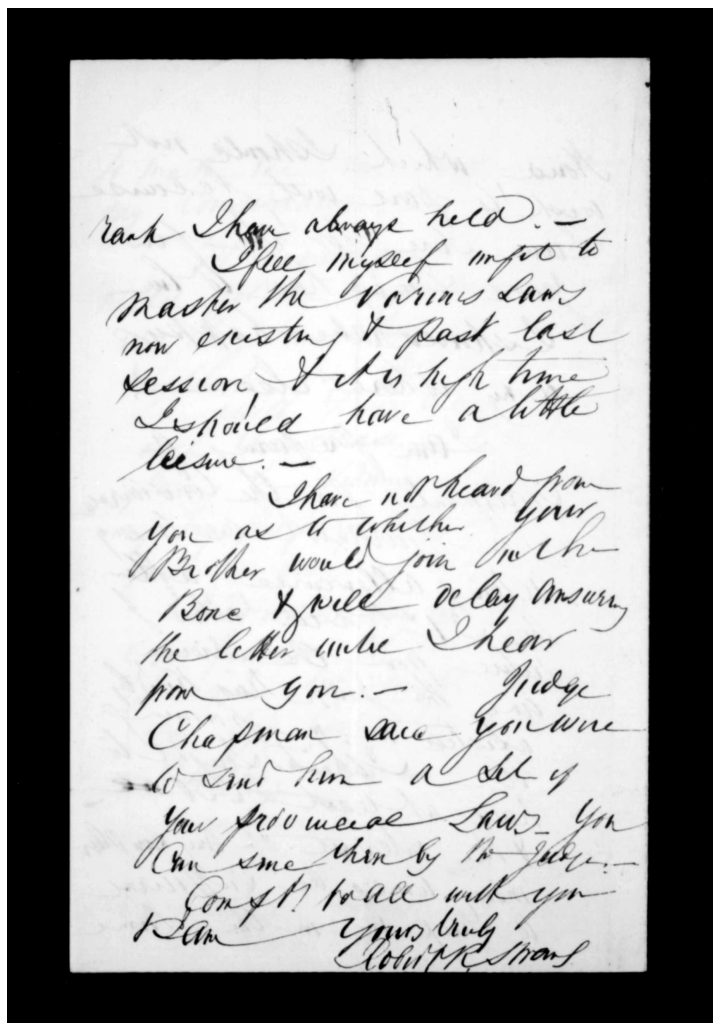 rank I have always held. —
I feel myself unfit to
master the Various Laws
now existing & past last
session, & it is high time
I should have a little
leisure. —
I have not heard from
you as to whether your
Brother would join in the
Bone & will delay answering
the letter until I hear
from you. — Judge
Chapman said you were
to send him a Set of
your provincial Laws — You
Can send them by the Judge. —
Compts. to all with you
I am Yours truly
Robert R. Strang